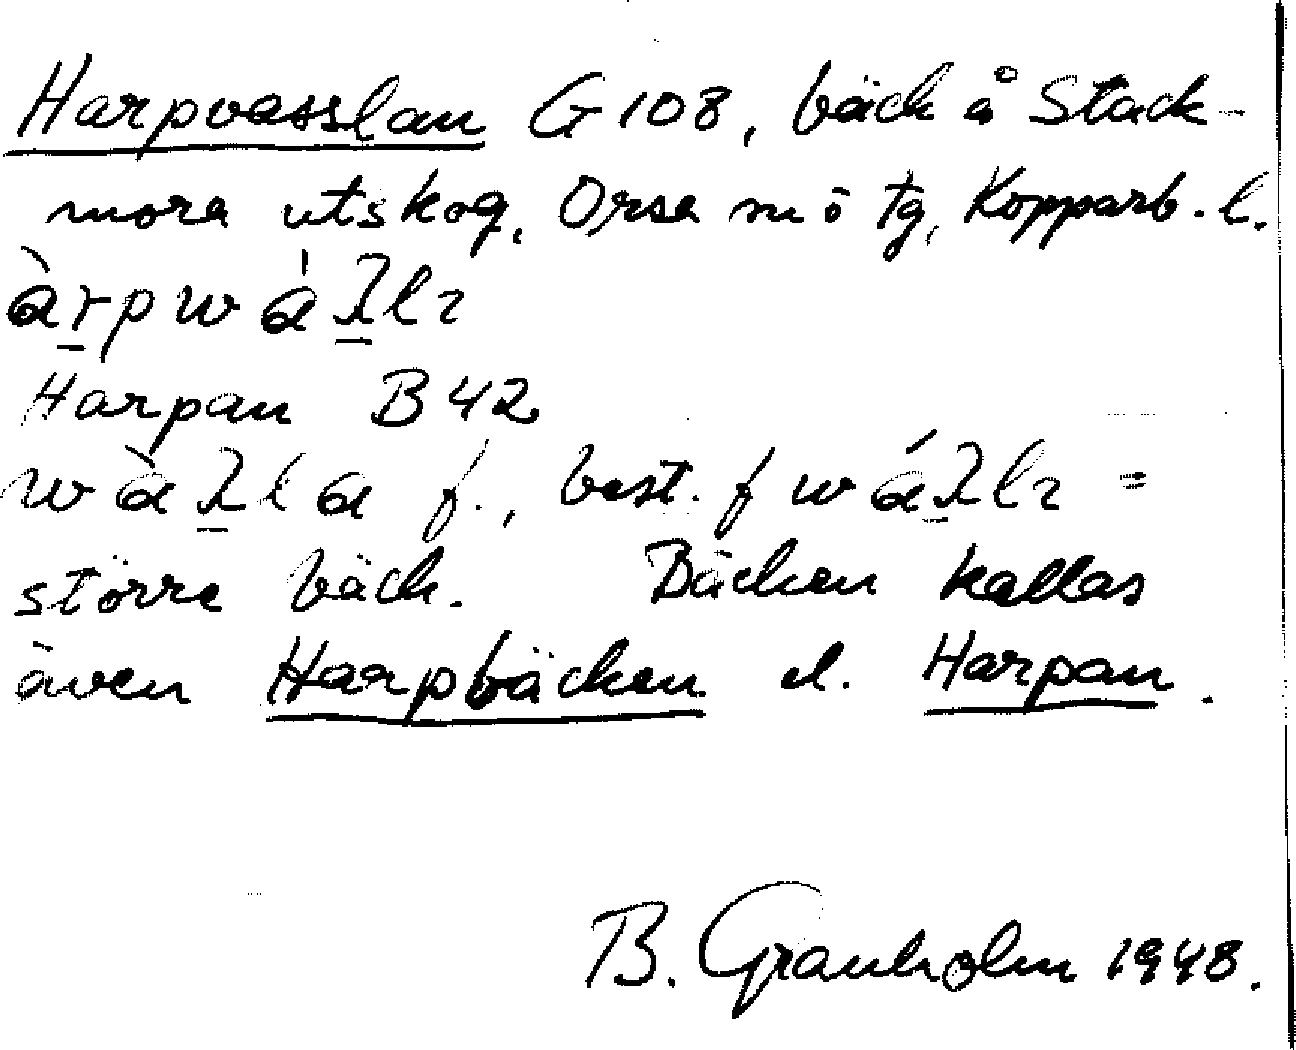 Harpvasslan G 108, bäck å Stack-
mora utskog, Orsa sn ö tg, Kopparb. l.
àrpwáλlɿ
Harpan B 42
wàλla f., best. f wáλlɿ =
större bäck. Bäcken kallas
även Harpbäcken el. Harpan.
B. Granholm 1948.